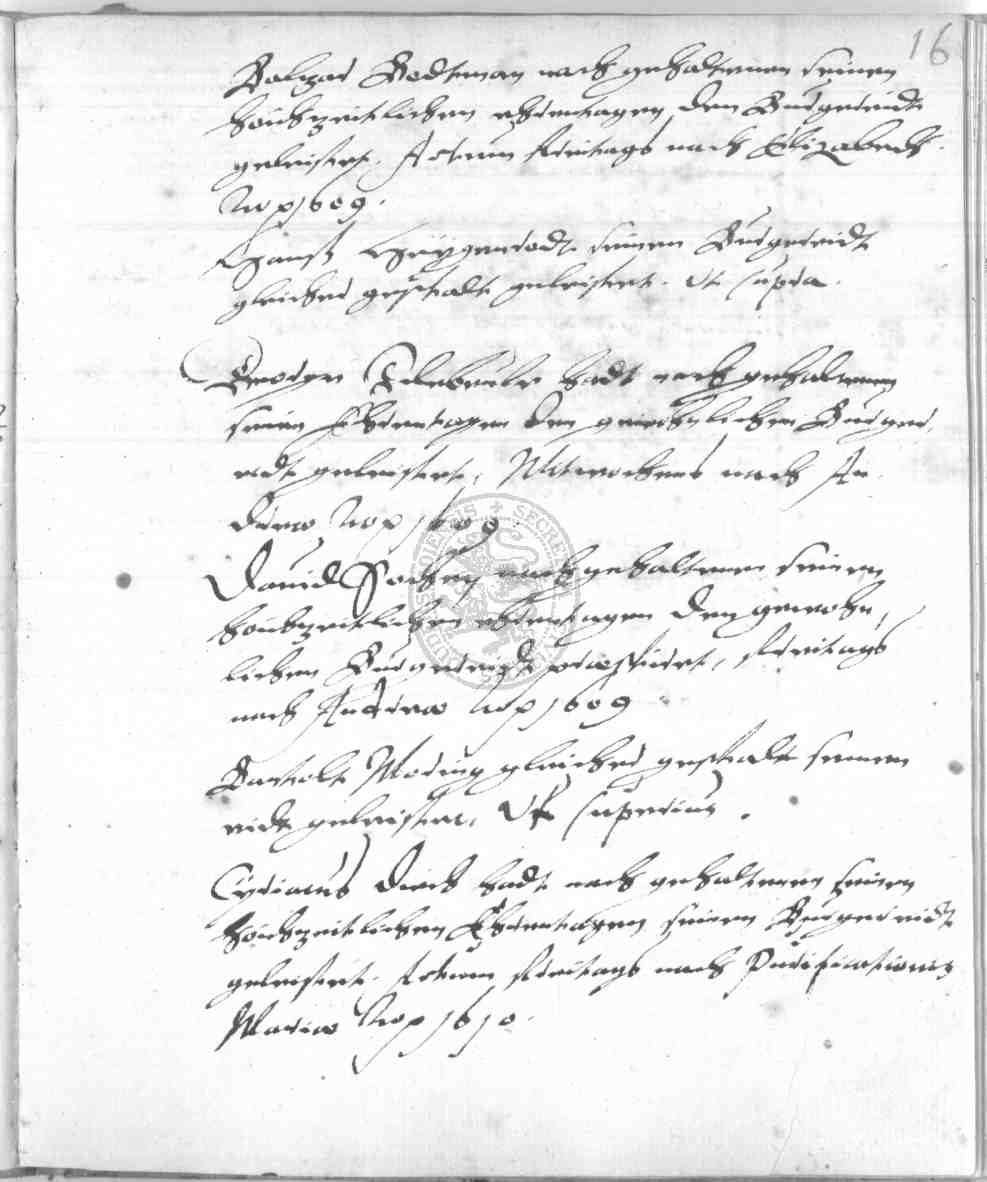 16
Baltzar Bodtman nach gehaltenen seinen
hochzeitlichen ehrentagen den Burgereidt
geleistet. Actum freitags nach Elizabeth.
Ano 1609.
Hanß seinen Burgereidt
gleicher gestalt geleistet. Ut supra.
hadt nach gehaltenen
seinen Ehrentagen den gewohnlichen Burger,
eidt geleistet, Mitwochens nach An
dreae Ano 1609.
David nach gehaltenen seinen
hochzeitlichen ehrentagen den gewohn,
lichen Burgereidt praestiret, freitags
nach Andreae Ano 1609
Bartolt Moring gleicher gestalt seinen
eidt geleistet, Ut superius.
Cyriacus Dierk hadt nach gehaltenen seinen
hochzeitlichen Ehrentagen seinen Burgereidt
geleistet. Actum freitags nach Purificationis
Mariae Ano 1610.